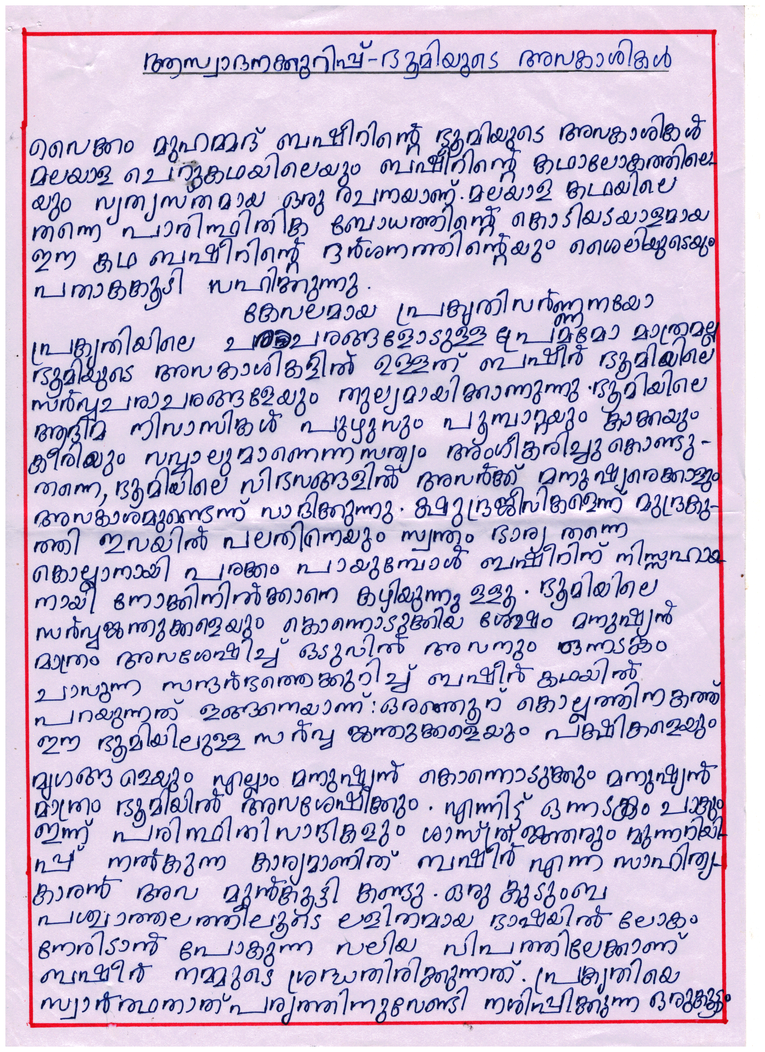 ആസ്വാദനക്കുറിപ്പ്-ഭൂമിയുടെ അവകാശികൾ
വൈക്കം മുഹമ്മദ് ബഷീറിന്റെ ഭൂമിയുടെ അവകാശികൾ
മലയാള ചെറുകഥയിലെയും ബഷീറിന്റെ കഥാലോകത്തിലെ
യും വ്യത്യസ്തമായ ഒരു രചനയാണ്. മലയാള കഥയിലെ
തന്നെ പാരിസ്ഥിതിക ബോധത്തിന്റെ കൊടിയടയാളമായ
ഈ കഥ ബഷീറിന്റെ ദർശനത്തിന്റെയും ശൈലിയുടെയും
പതാകകൂടി വഹിക്കുന്നു.
കേവലമായ പ്രകൃതിവർണ്ണനയോ
പ്രകൃതിയിലെ ചരാചരങ്ങളോടുള്ള പ്രേമമോ മാത്രമല്ല
ഭൂമിയുടെ അവകാശികളിൽ ഉള്ളത് ബഷീർ ഭൂമിയിലെ
സർവ്വചരാചരങ്ങളേയും തുല്യമായിക്കാണുന്നു. ഭൂമിയിലെ
ആദിമ നിവാസികൾ പുഴുവും പൂമ്പാറ്റയും കാക്കയും
കീരിയും വവ്വാലുമാണെന്ന സത്യം അംഗീകരിച്ചു കൊണ്ടു-
തന്നെ, ഭൂമിയിലെ വിഭവങ്ങളിൽ അവർക്ക് മനുഷ്യരെക്കാളും
അവകാശമുണ്ടെന്ന് വാദിക്കുന്നു. ക്ഷുദ്രജീവികളെന്ന് മുദ്രകു-
ത്തി ഇവയിൽ പലതിനെയും സ്വന്തം ഭാര്യ തന്നെ
കൊല്ലാനായി പരക്കം പായുമ്പോൾ ബഷീറിന് നിസ്സഹായ
നായി നോക്കിനിൽക്കാനെ കഴിയുന്നു ള്ളൂ. ഭൂമിയിലെ
സർവ്വജന്തുക്കളെയും കൊന്നൊടുക്കിയ ശേഷം മനുഷ്യൻ
മാത്രം അവശേഷിച്ച് ഒടുവിൽ അവനും ഒന്നടങ്കം
ചാവുന്ന സന്ദർഭത്തെക്കുറിച്ച് ബഷീർ കഥയിൽ
പറയുന്നത് ഇങ്ങനെയാണ്: ഒരഞ്ഞൂറ് കൊല്ലത്തിനകത്ത്
ഈ ഭൂമിയിലുള്ള സർവ്വ ജന്തുക്കളെയും പക്ഷികളെയും
മൃഗങ്ങളെയും എല്ലാം മനുഷ്യൻ കൊന്നൊടുക്കും മനുഷ്യൻ
മാത്രം ഭൂമിയിൽ അവശേഷിക്കും. എന്നിട്ട് ഒന്നടങ്കം ചാകും
ഇന്ന് പരിസ്ഥിതിവാദികളും ശാസ്ത്രജ്ഞരും മുന്നറിയി-
പ്പ് നൽകുന്ന കാര്യമാണിത് ബഷീർ എന്ന സാഹിത്യ-
കാരൻ അവ മുൻകൂട്ടി കണ്ടു. ഒരു കുടുംബ
പശ്ചാത്തലത്തിലൂടെ ലളിതമായ ഭാഷയിൽ ലോകം
നേരിടാൻ പോകുന്ന വലിയ വിപത്തിലേക്കാണ്
ബഷീർ നമ്മുടെ ശ്രദ്ധതിരിക്കുന്നത്. പ്രകൃതിയെ
സ്വാർത്ഥതാത്പര്യത്തിനുവേണ്ടി നശിപ്പിക്കുന്ന ഒരുകൂട്ടം